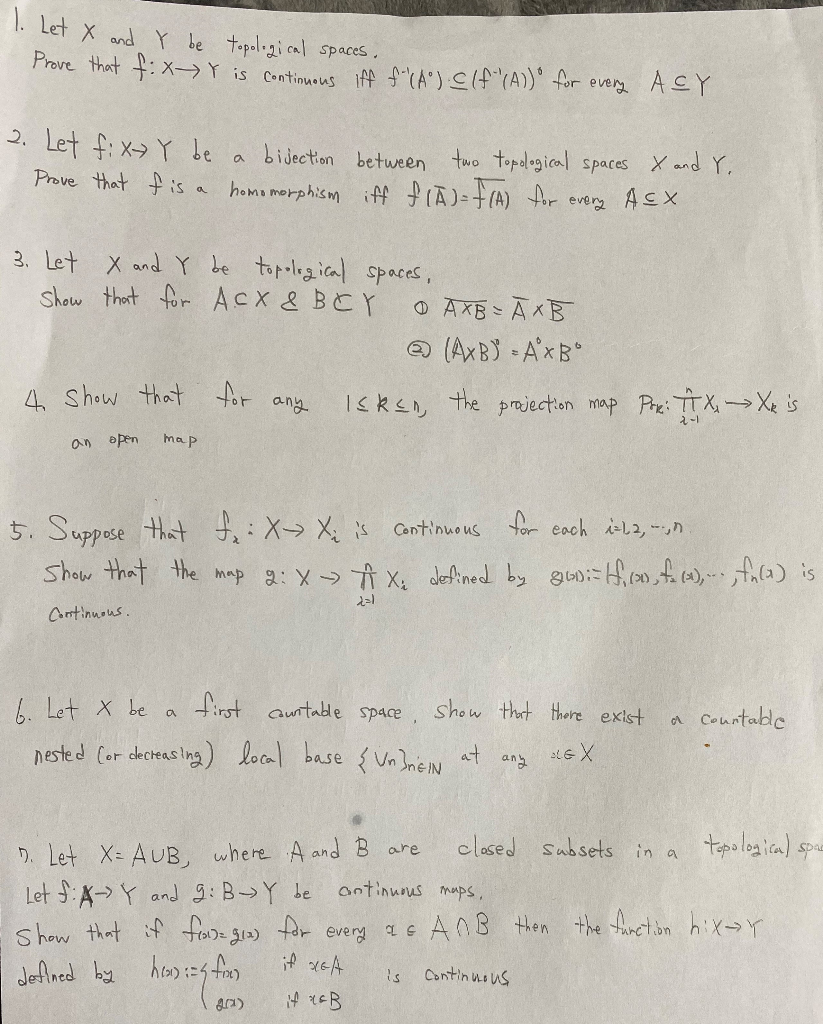 1. Let X and Y be topological spaces.
Prove that f: X→Y is continuous iff f⁻¹(A°) ⊆ (f⁻¹(A))° for every A ⊆ Y
2. Let f: X→Y be a bijection between two topological spaces X and Y.
Prove that f is a homomorphism iff f(A̅) = \overline{f(A)} for every A ⊆ X
3. Let X and Y be topological spaces,
Show that for A⊂X & B⊂Y ① \overline{A×B} = A̅ × B̅
② (A×B)° = A° × B°
4. Show that for any 1≤k≤n, the projection map Pr_k: ∏_{i=1}^{n} X_i → X_k is
an open map
5. Suppose that f_i : X→X_i is continuous for each i=1,2,...,n
Show that the map g: X → ∏_{i=1}^{n} X_i defined by g(x):=(f_1(x), f_2(x), ..., f_n(x) is
Continuous.
6. Let X be a first countable space, show that there exist a countable
nested (or decreasing) local base {V_n}_{n∈ℕ} at any x∈X
7. Let X=A∪B, where A and B are closed subsets in a topological spa
Let f: A→Y and g: B→Y be continuous maps,
Show that if f(x)=g(x) for every x ∈ A∩B then the function h: X→Y
defined by h(x) := { f(x) if x∈A is continuous
g(x) if x∈B